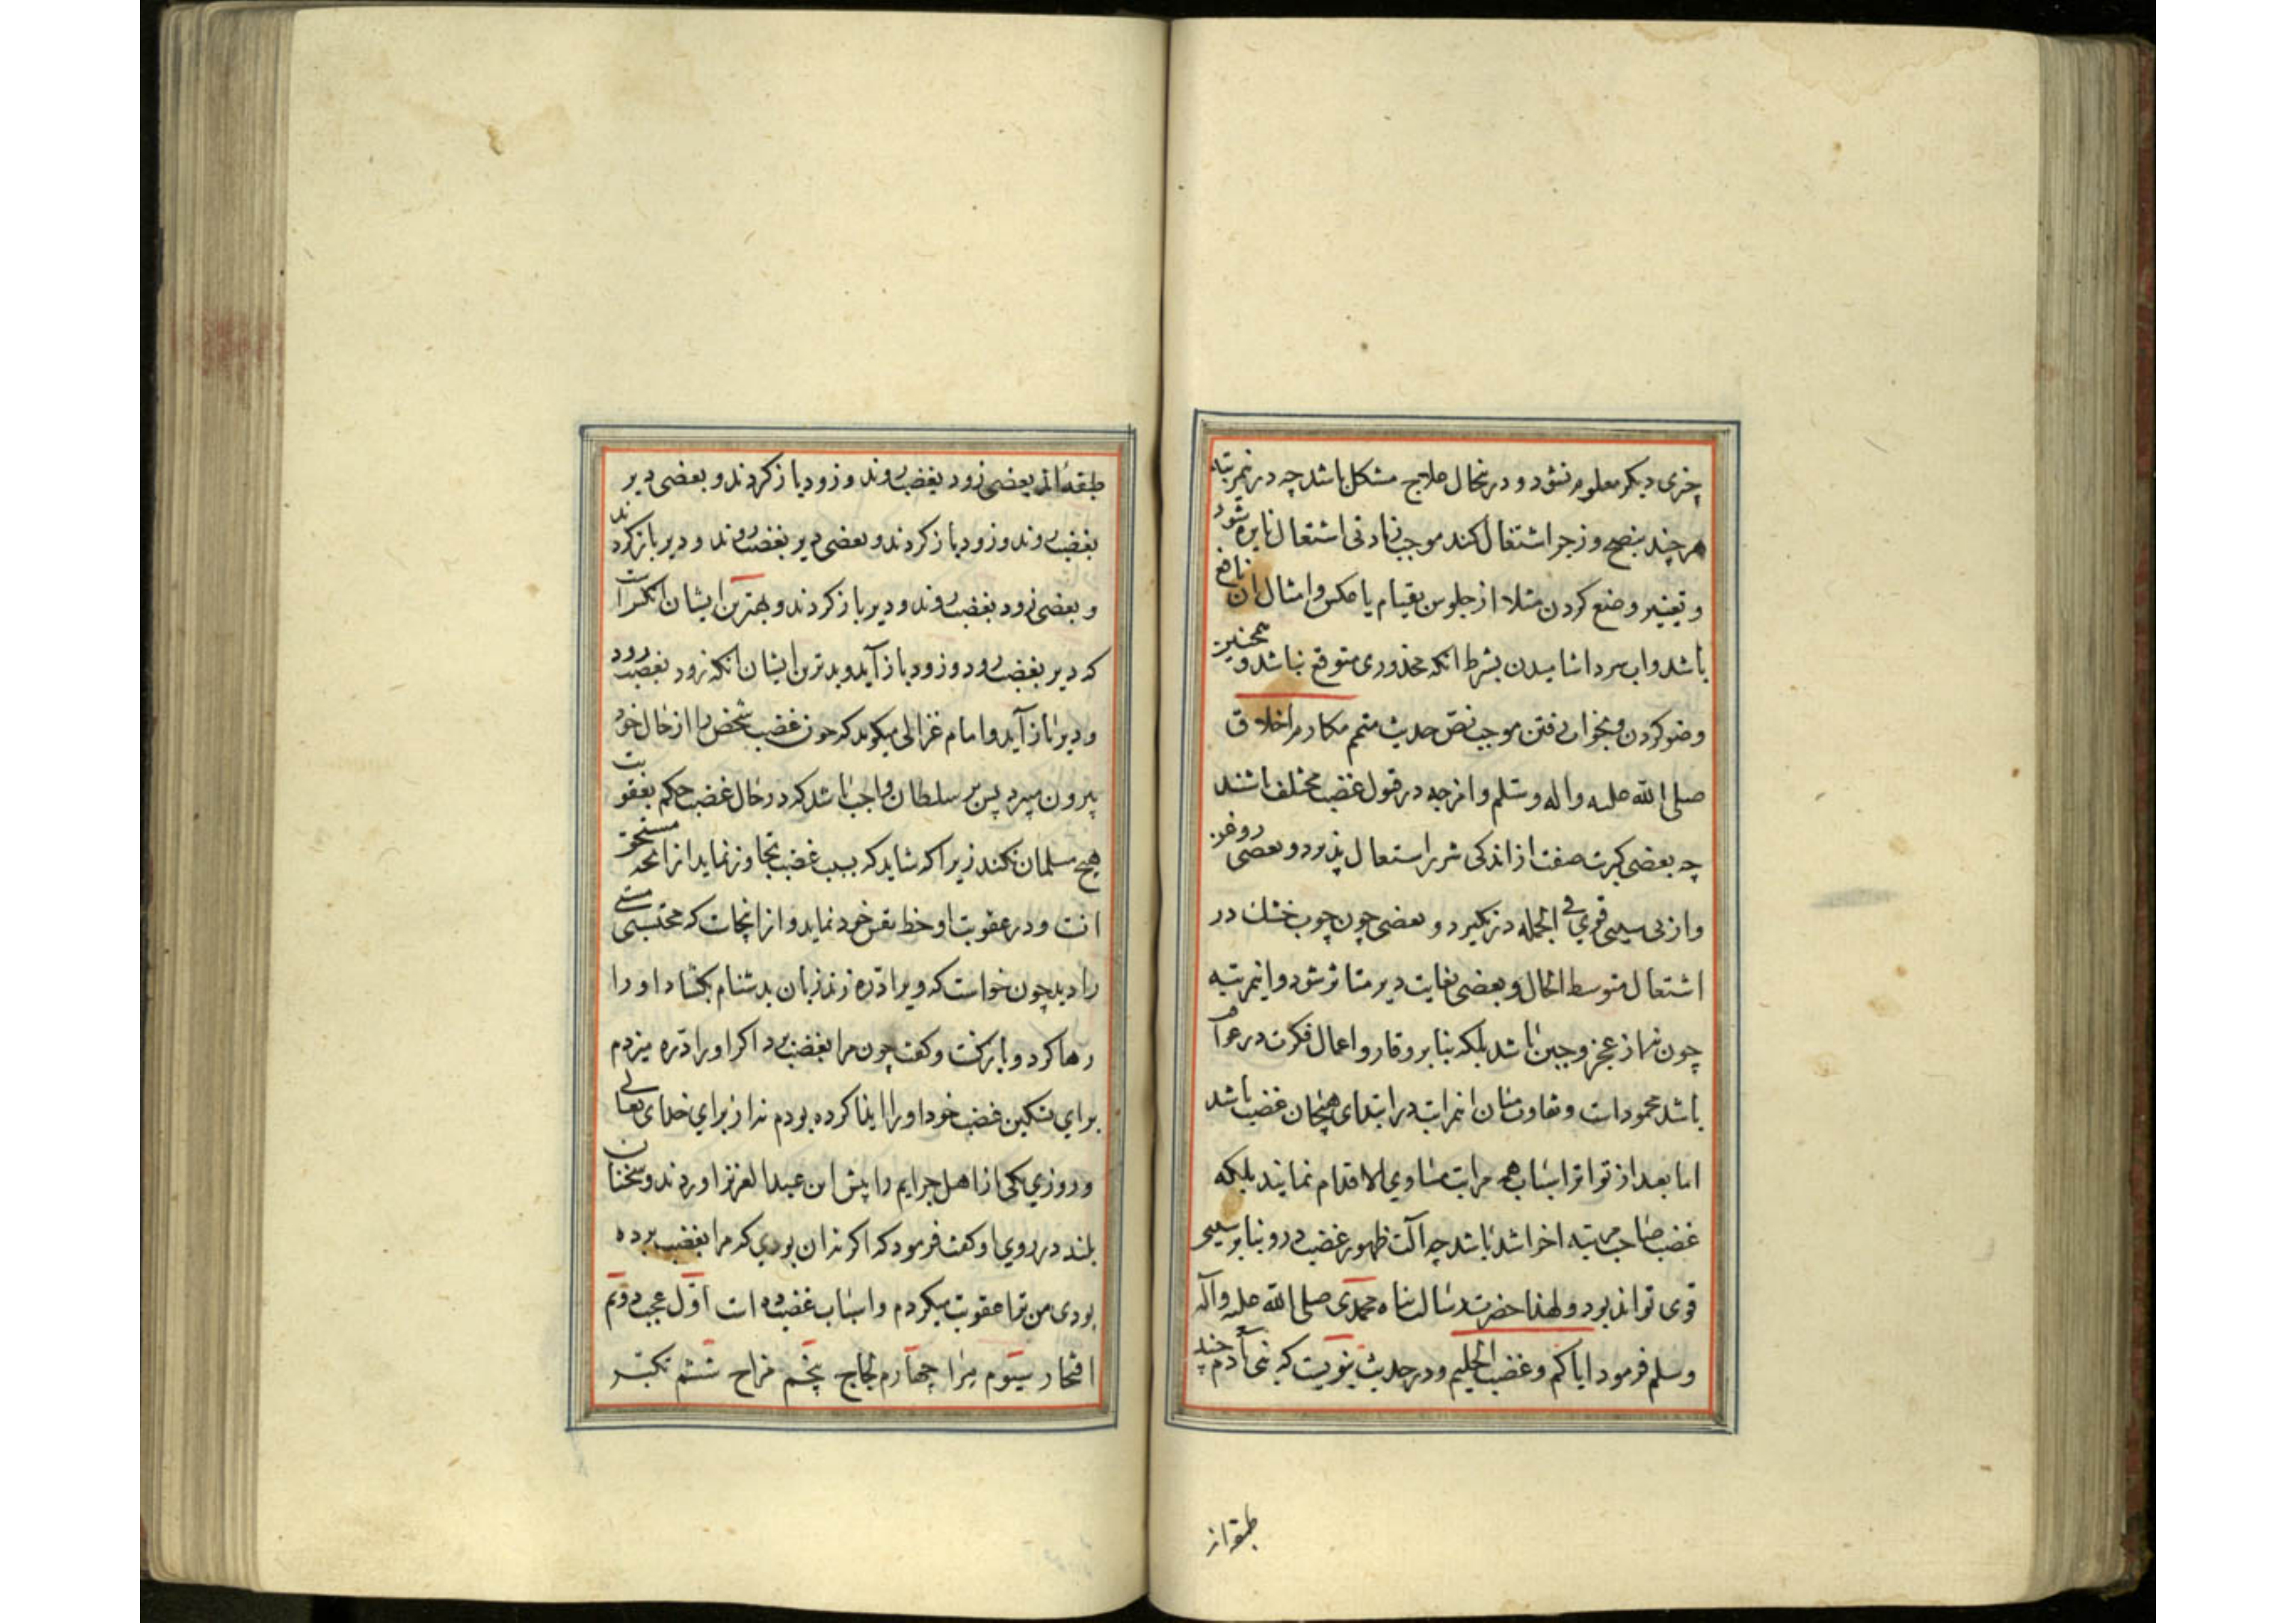 چیزی دیکر معلوم نشود و درینحال علاج مشکل باشد چه در نمرتبه
هر چند بنصح و زجر اشتغال کند موجب زیادتی اشتعال نایره شود
و تغییر وضع کردن مثلا از جلوس بقیام یا عکس و امثال ان نافع
باشد و اب سرد اشامیدن بشرط انکه محذوری متوقع نباشد و همچنین
وضو کردن و بخواب رفتن موجب نص حدیث متمم مکارم اخلاق
صلی الله علیه واله وسلم و امزجه در قبول غضب مختلف باشند
چه بعضی کبریت صفت از اندکی شرر اشتعال پذیرد و بعضی روغن
وار بی سببی قوی فی الجمله درنکیرد و بعضی چون چوب خشک در
اشتعال متوسط الحال و بعضی بغایت دیر متاثر شود و اینمرتبه
چون نه از عجز و جبن باشد بلکه بنابر وقار و اعمال فکرت در عواقب
باشد محمود است و تفاوت میان انمراتب در ابتدای هیجان غضب باشد
اما بعد از تواتر اسباب همه مراتب متساوی الاقدام نمایند بلکه
غضب صاحب مرتبه اخر اشد باشد چه آلت ظهور غضب درو بنابر سببی
قوی تواند بود و لهذا حضرت رسالت پناه محمدی صلی الله علیه وآله
وسلم فرمود ایاکم و غضب الحلیم و در حدیث نبویست که بنی آدم چند
طبقه اند
طبقه اند بعضی زود بغضب روند و زود باز کردند و بعضی دیر
بغضب روند و زود باز کردند و بعضی دیر بغضب روند و دیر باز کردند
و بعضی زود بغضب روند و دیر باز کردند و بهترین ایشان انکس است
که دیر بغضب رود و زود باز آید و بدترین ایشان انکه زود بغضب رود
و دیر باز آید و امام غزالی میکوید که چون غضب شخص را از حال خود
بیرون میبرد پس بر سلطان واجب باشد که در حال غضب حکم بعقوبت
هیچ مسلمان نکند زیرا که شاید که بسبب غضب تجاوز نماید از انچه مستحق
انست و در عقوبت او حظ نفس خود نماید و از اینجاست که محتسبی مستی
را دید چون خواست که ویرا دره زند زبان بدشنام بکشاد او را
رها کرد و باز کشت و کفت چون مرا بغضب برد اکر او را دره میزدم
برای تسکین غضب خود او را ایذا کرده بودم نه از برای خدای تعالی
و روزی یکی از اهل جرایم را پیش ابن عبد العزیز اوردند و سخنان
بلند در روی او کفت فرمود که اکر نه ان بودی که مرا بغضب برده
بودی من ترا عقوبت میکردم و اسباب غضب ده است اول عجب دوم
افتخار سیوم مرا چهارم لجاج پنجم مزاح ششم تکبر